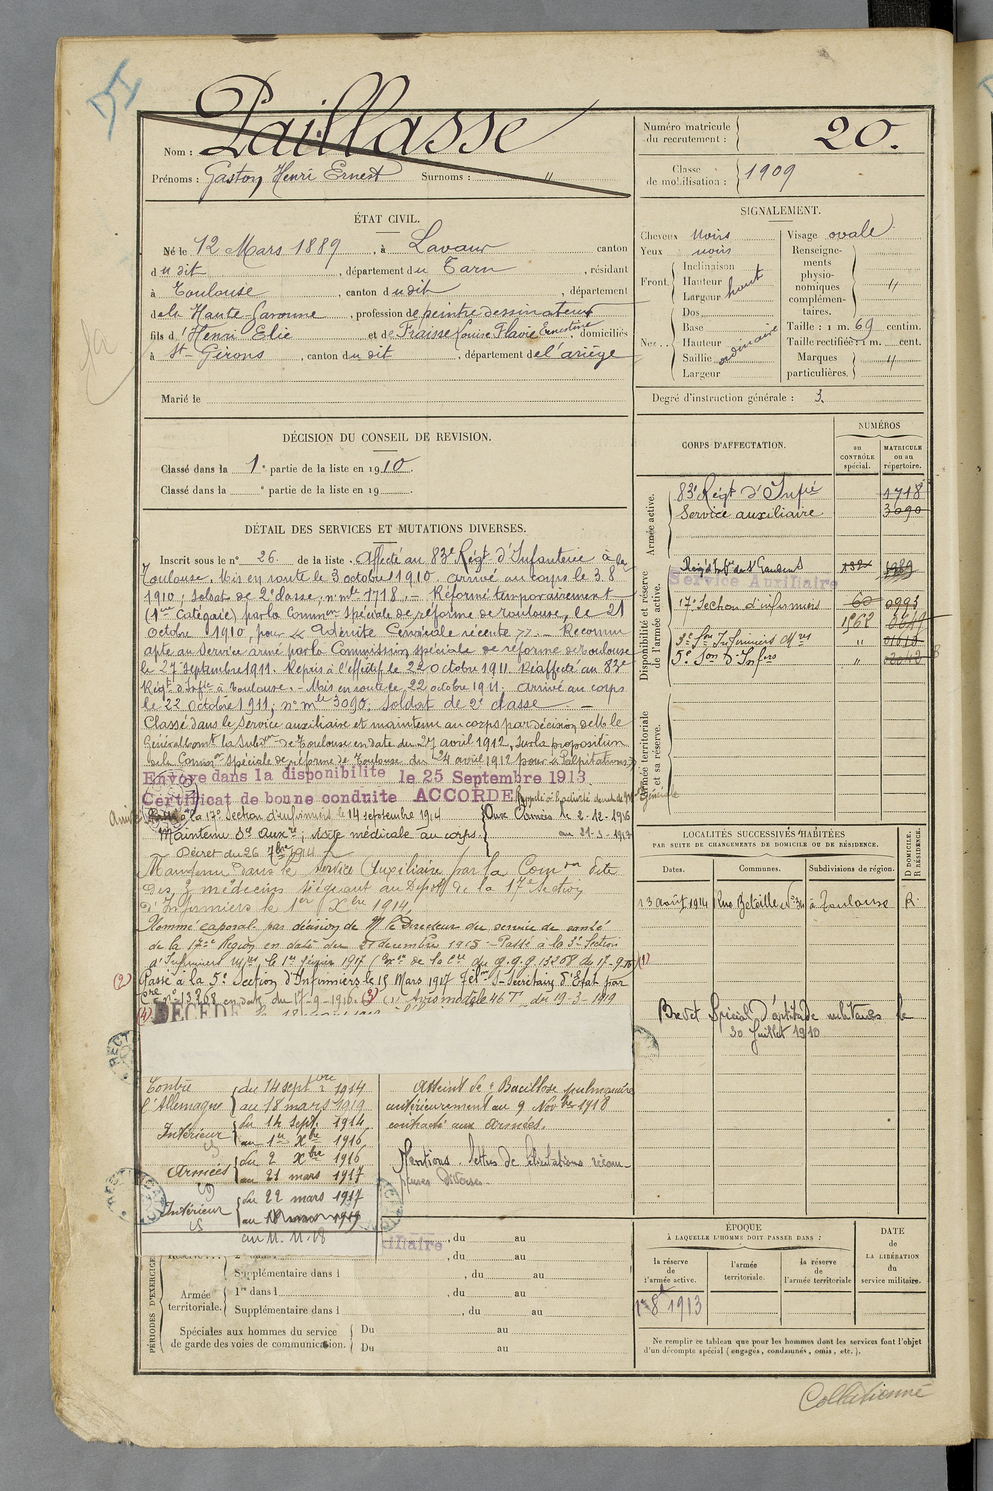 DI
Nom : Paillasse
Prénoms : Gaston Henri Ernest Surnoms : "
Numéro matricule du recrutement : 20.
Classe de mobilisation : 1909
ÉTAT CIVIL.
Né le 12 Mars 1889, à Lavaur canton
du dit, département du Tarn, résidant
à Toulouse, canton du dit, département
de la Haute-Garonne, profession de peintre dessinateur
fils d'Henri Elie et de Fraisse Louise Flavie Ernestine, domiciliés
à St-Girons, canton du dit, département de l'ariège
Marié le
SIGNALEMENT.
Cheveux noirs Visage ovale
Yeux noirs
Front. Inclinaison Hauteur Largeur haut
Nez Dos Base Hauteur Saillie Largeur ordinaire
Renseignements physionomiques complémentaires. "
Taille : 1 m. 69 centim.
Taille rectifiée : 1 m. cent.
Marques particulières. "
Degré d'instruction générale : 3.
DÉCISION DU CONSEIL DE REVISION.
Classé dans la 1e partie de la liste en 1910.
Classé dans la e partie de la liste en 19
DÉTAIL DES SERVICES ET MUTATIONS DIVERSES.
Inscrit sous le n° 26. de la liste. Affecté au 83e Régt d'Infanterie à
Toulouse. Mis en route le 3 octobre 1910. arrivé au corps le 3.8
1910; Soldat de 2e classe, n° mle 1718, - Réformé temporairement
(1ère Catégorie) par la Comon spéciale de réforme de Toulouse, le 21
Octobre 1910, pour « Adénite Cervicale récente ». - Reconnu
apte au Service armé par la Commission spéciale de réforme de Toulouse
le 27 septembre 1911. Repris à l'effectif le 22 octobre 1911. Réaffecté au 83e
Régt d'Infie à Toulouse. - Mis en route le 22 octobre 1911, arrivé au corps
le 22 Octobre 1911; n° mle 3090. Soldat de 2e classe. -
Classé dans le Service auxiliaire et maintenu au corps par décision de Mr le
Général Comt la Subdon de Toulouse en date du 27 avril 1912, sur la proposition
de la Comon Spéciale de réforme de Toulouse du 24 avril 1912 pour « Palpitations »
Envoyé dans la disponibilité le 25 Septembre 1913
Certificat de bonne conduite ACCORDÉ
à la 17e Section d'infirmiers le 14 septembre 1914
Maintenu Sce Auxre; visite médicale au corps.
Aux Armées le 2-12-1916
au 21-3-1917
Décret du 26 7bre 1914
Maintenu dans le service Auxiliaire par la Comon dite
des 3 médecins siégeant au Dépôt de la 17e Section
d'Infirmiers le 1er Xbre 1914.
Nommé caporal par décision de Mr le Directeur du service de santé
de la 17me Région en date du 31 decembre 1915 - Passé à la 9e Section
d'Infirmiers Mres le 1er février 1917 (1)
(2) Passé à la 5e Section d'Infirmiers le 15 Mars 1917
n° 13268 en date du 17-9-1916. (3)
(4) DÉCÉDÉ
Contre l'Allemagne du 14 septbre 1914
au 18 mars 1919
Intérieur du 14 sept. 1914
au 1er Xbre 1916
Armées du 2 Xbre 1916
au 21 mars 1917
Intérieur du 22 mars 1917
au
au 11.11.18
Atteint de « Bacillose pulmonaire
antérieurement au 9 Novbre 1918
contracté aux Armées.
Mentions. lettres de félicitations
diverses.
CORPS D'AFFECTATION.
NUMÉROS
au CONTRÔLE spécial.
MATRICULE ou au répertoire.
Armée active.
83e Régt d'Infie 1718
Service auxiliaire 3090
Disponibilité et réserve de l'armée active.
Régt d'Infie de St Gaudens
Service Auxiliaire
17e Section d'infirmiers 60
9e Son Infirmiers Mres "
5e Son d'Infers "
Armée territoriale et sa réserve.
LOCALITÉS SUCCESSIVES HABITÉES
PAR SUITE DE CHANGEMENTS DE DOMICILE OU DE RÉSIDENCE.
Dates. Communes. Subdivisions de région. D DOMICILE. R RÉSIDENCE.
13 août 1914 Rue Béteille à Toulouse R.
Brevet Spécial d'aptitude militaire le
30 Juillet 1910
PÉRIODES D'EXERCICES
iliaire
, du au
, du au
Supplémentaire dans l , du au
Armée territoriale. 1re dans l , du au
Supplémentaire dans l , du au
Spéciales aux hommes du service de garde des voies de communication. Du au
Du au
ÉPOQUE
À LAQUELLE L'HOMME DOIT PASSER DANS :
la réserve de l'armée active.
l'armée territoriale.
la réserve de l'armée territoriale
DATE de LA LIBÉRATION du service militaire.
1er 8bre 1913
Ne remplir ce tableau que pour les hommes dont les services font l'objet
d'un décompte spécial (engagés, condamnés, omis, etc.).
Collationné